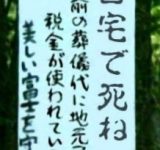 自宅で死ね
前の葬儀代に地元の
税金が使われてい
美しい富士を守